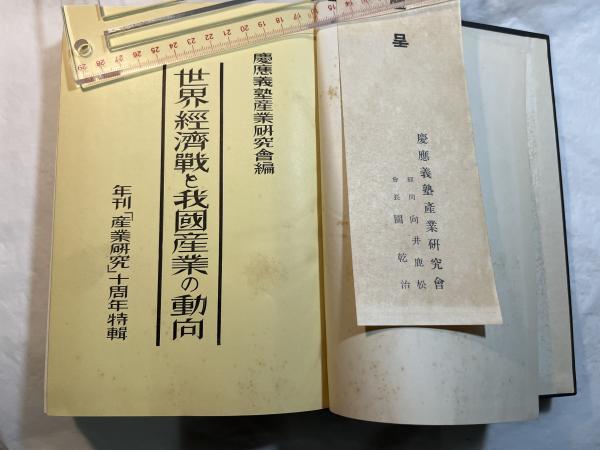 慶應義塾產業研究會
顧問 向井鹿松
會長 園乾治
慶應義塾産業研究會編
世界經濟戰と我國産業の動向
年刊「産業研究」十周年特輯
14 15 16 17 18 19 20 21 22 23 24 25 26 27 28 29